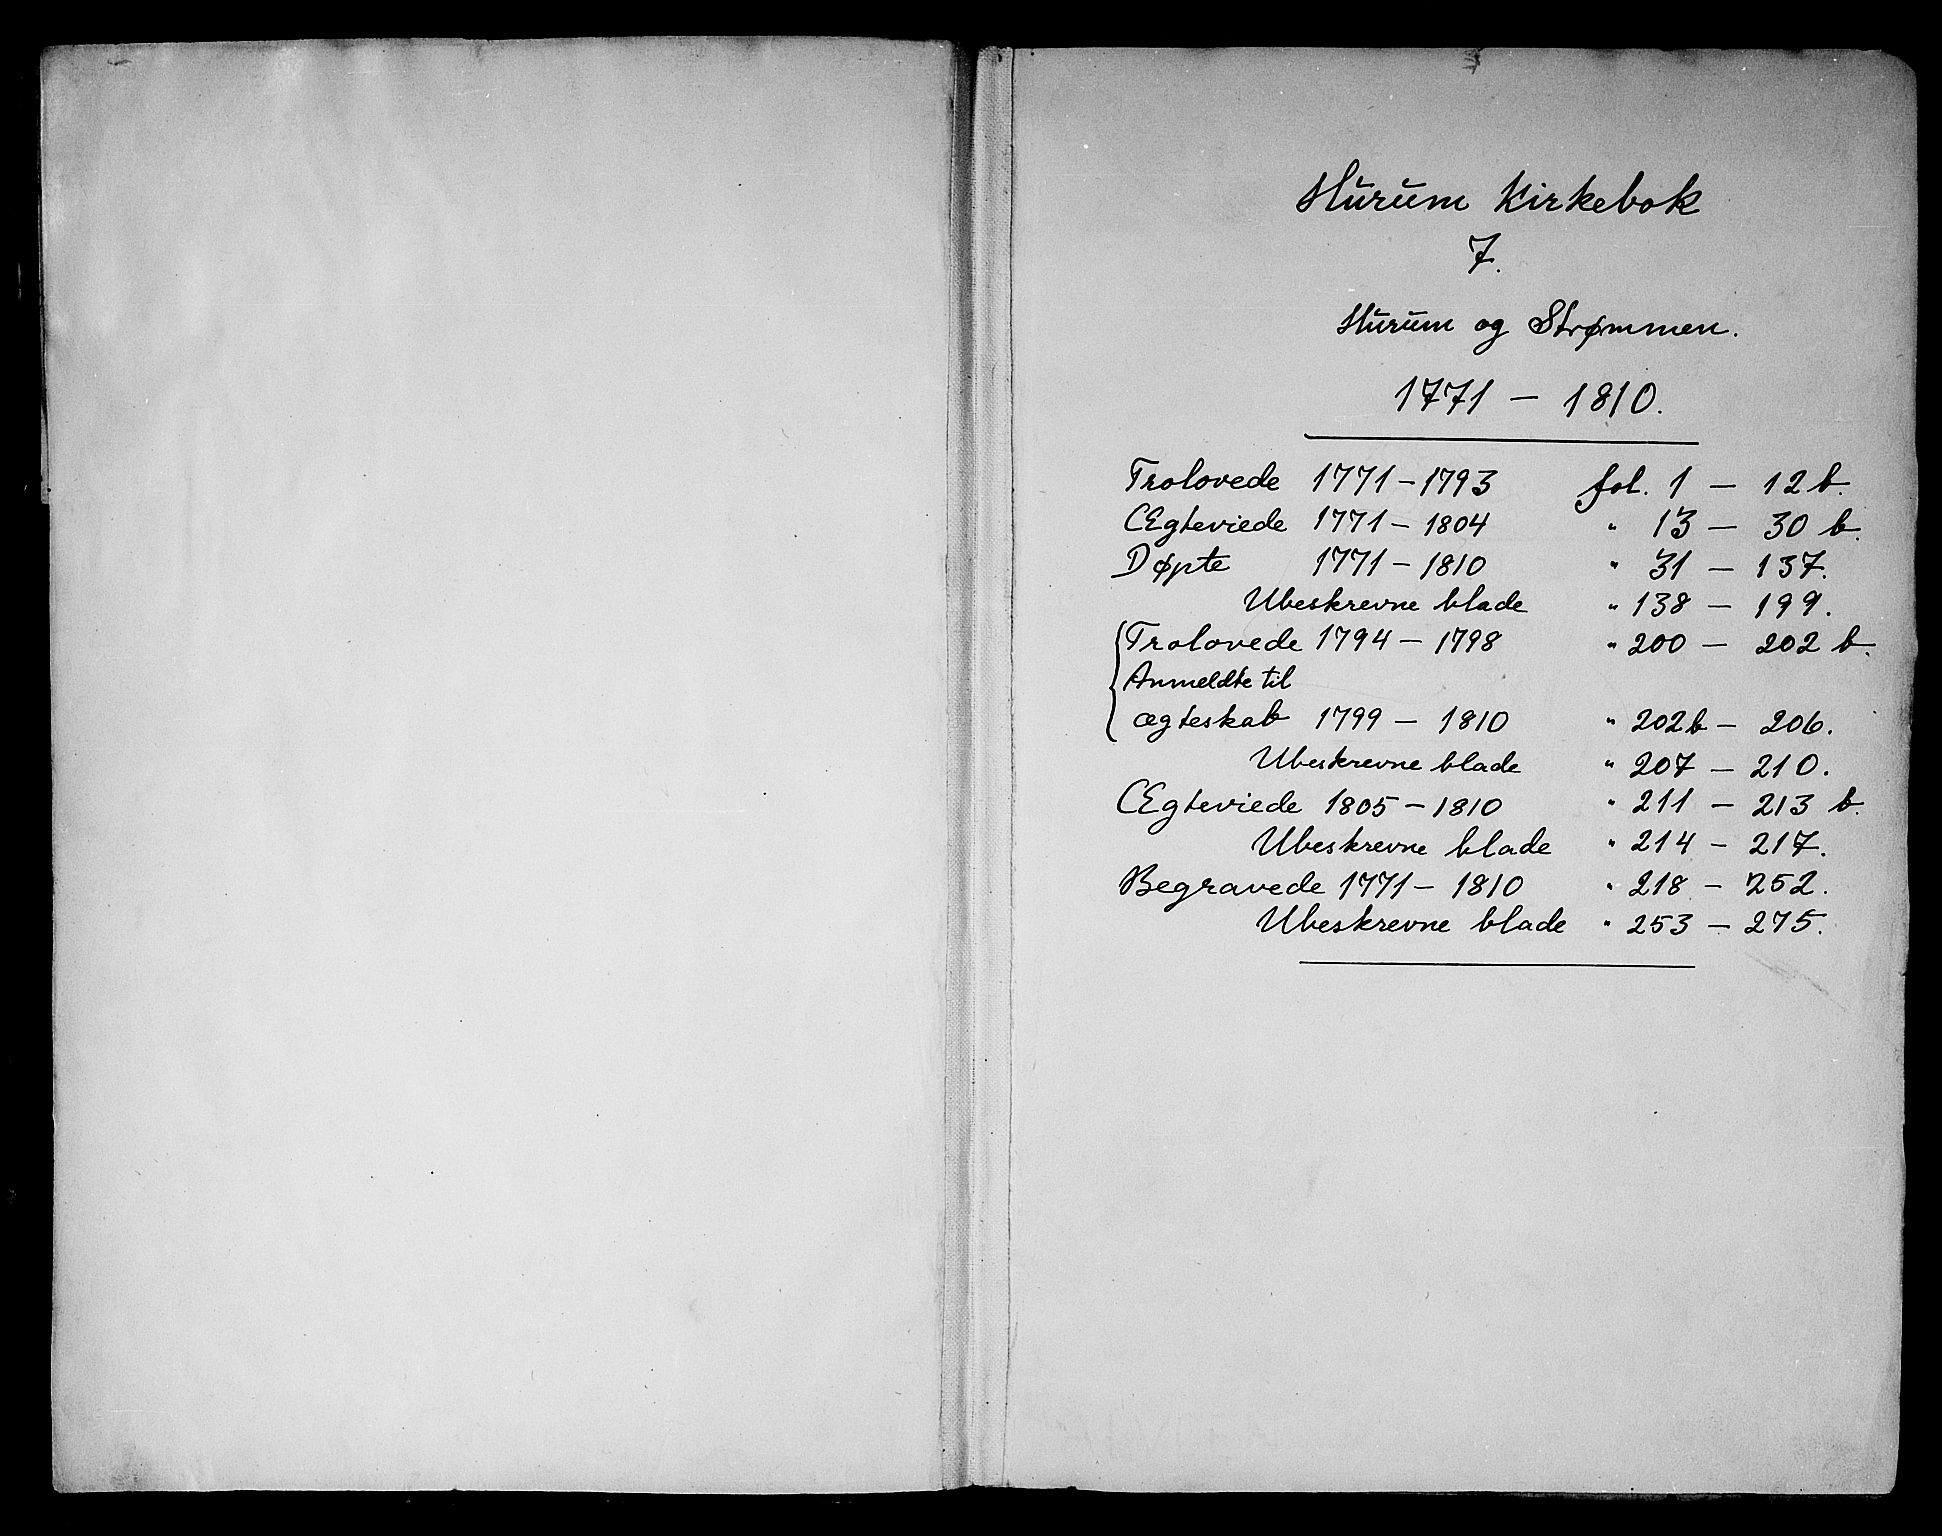 Hurum Kirkebok
7.
Hurum og Strømmen.
1771 – 1810.
Trolovede 1771 – 1793 fol. 1 – 12 b.
Ægteviede 1771 – 1804 " 13 – 30 b.
Døpte 1771 – 1810 " 31 – 137.
Ubeskrevne blade " 138 – 199.
Trolovede 1794 – 1798 " 200 – 202 b.
Anmeldte til
ægteskab 1799 – 1810 " 202b – 206.
Ubeskrevne blade " 207 – 210.
Ægteviede 1805 – 1810 " 211 – 213 b.
Ubeskrevne blade " 214 – 217.
Begravede 1771 – 1810 " 218 – 252.
Ubeskrevne blade " 253 – 275.